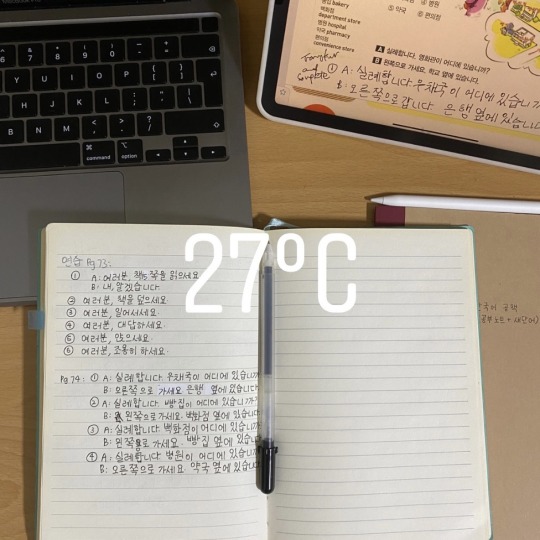 bakery
백화점
department store
병원 hospital
약국 pharmacy
편의점
convenience store
④ 병원
⑤ 약국 ⑥ 편의점
A 실례합니다. 영화관이 어디에 있습니까?
B 왼쪽으로 가세요. 학교 옆에 있습니다.
① A: 실례합니다 우채국이 어디에 있습니
B: 오른쪽으로 갑니다 은행 옆에 있습니
command
option
27°C
연습 Pg 73:
① A: 여러분, 책 을 읽으세요
B: 네, 알겠습니다
② 여러분, 책을 덮으세요
③ 여러분, 일어서세요
④ 여러분, 대답하세요
⑤ 여러분,
⑥ 여러분, 조용히 하세요
Pg 74: ① A: 실례합니다 우채국이 어디에 있습니까
B: 오른쪽으로 가세요 은행 옆에 있습니
② A: 실례합니다. 빵집이 어디에 있습니까?
B: 왼쪽으로 가세요. 백화점 옆에 있습니
③ A: 실례합니다 백화점이 어디에 있습니
B: 왼쪽으로 가세요. 빵집 옆에 있습니
④ A: 실례합니다 병원이 어디에 있습니
B: 오른쪽으로 가세요 약국 옆에 있습니